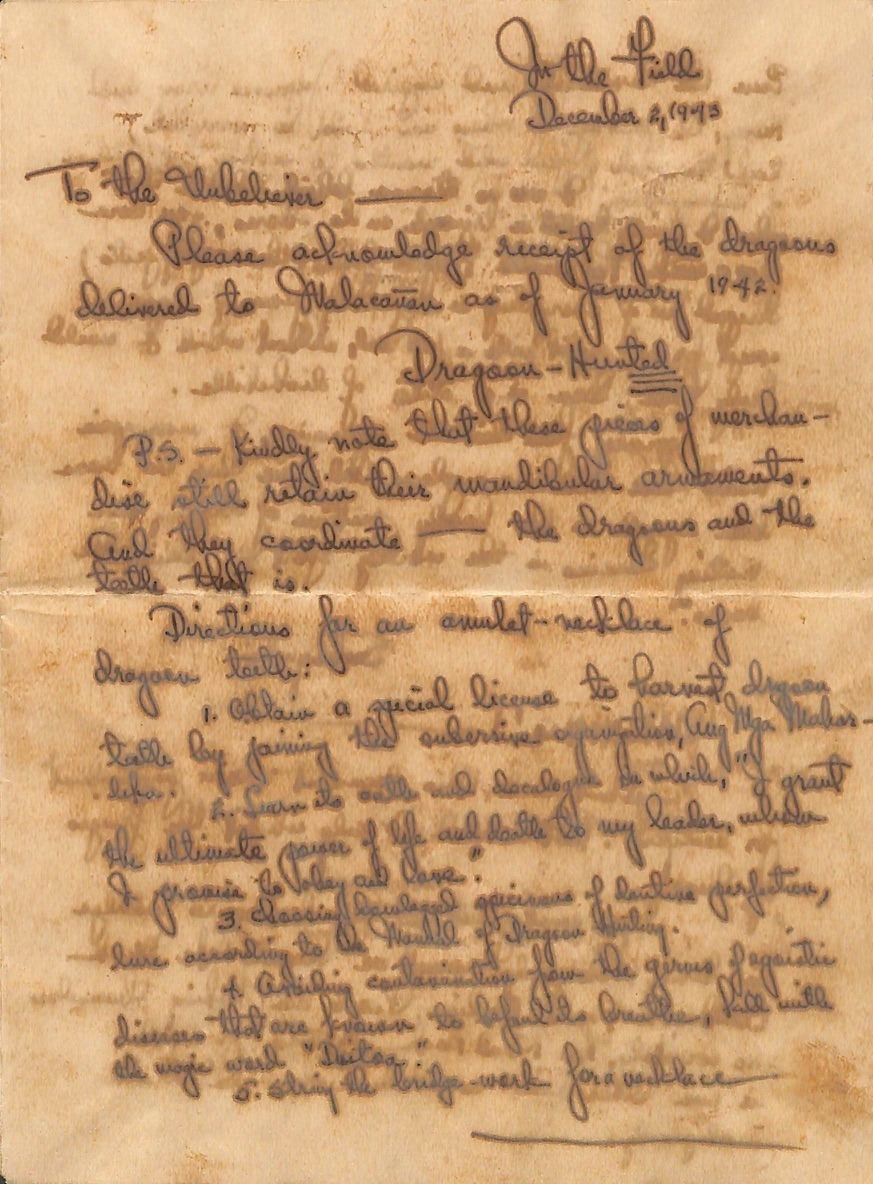 In the Field
December 2, 1943
To the Unbeliever ——
Please acknowledge receipt of the dragoons
delivered to Malacañan as of January 1942.
Dragoon-Hunted
P.S. — Kindly note that these pieces of merchan-
dise still retain their mandibular armaments.
And they coordinate —— the dragoons and the
teeth that is.
Directions for an amulet-necklace of
dragoon teeth:
1. Obtain a special license to harvest dragoon
teeth by joining the subersive organization, Ang Mga Mahar-
lika.
2. Learn its oath and decalogue in which, "I grant
the ultimate power of life and death to my leader, whom
I promise to obey and love."
3. Choosing specimens of dentine perfection,
lure according to the Manual of Dragoon Hunting.
4. Avoiding contamination from the germs of egoistic
diseases that are known to its breather, kill with
the magic word
5. String the bridge-work for a necklace ——